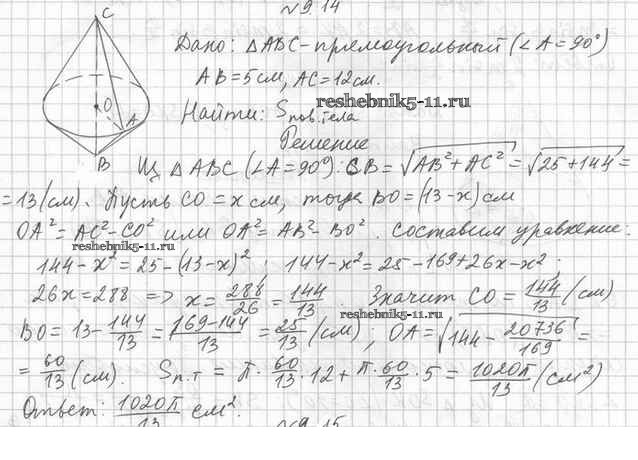 №9.14
C
Дано: △ABC-прямоугольный (∠A=90°)
AB=5см, AC=12см.
Найти: Sпов.тела
reshebnik5-11.ru
O
A
B
Решение
Из △ABC (∠A=90°): CB=√AB²+AC²=√25+144=
=13(см). Пусть CO=x см, тогда BO=(13-x)см
OA²=AC²-CO² или OA²=AB²-BO². Составим уравнение:
reshebnik5-11.ru
144-x²=25-(13-x)²; 144-x²=25-169+26x-x²;
26x=288 => x=288/26=144/13. Значит CO=144/13(см)
reshebnik5-11.ru
BO=13-144/13=169-144/13=25/13(см), OA=√144-20736/169=
=60/13(см). Sп.т=π·60/13·12+π·60/13·5=1020π/13(см²)
Ответ: 1020π/13 см².
№9.15